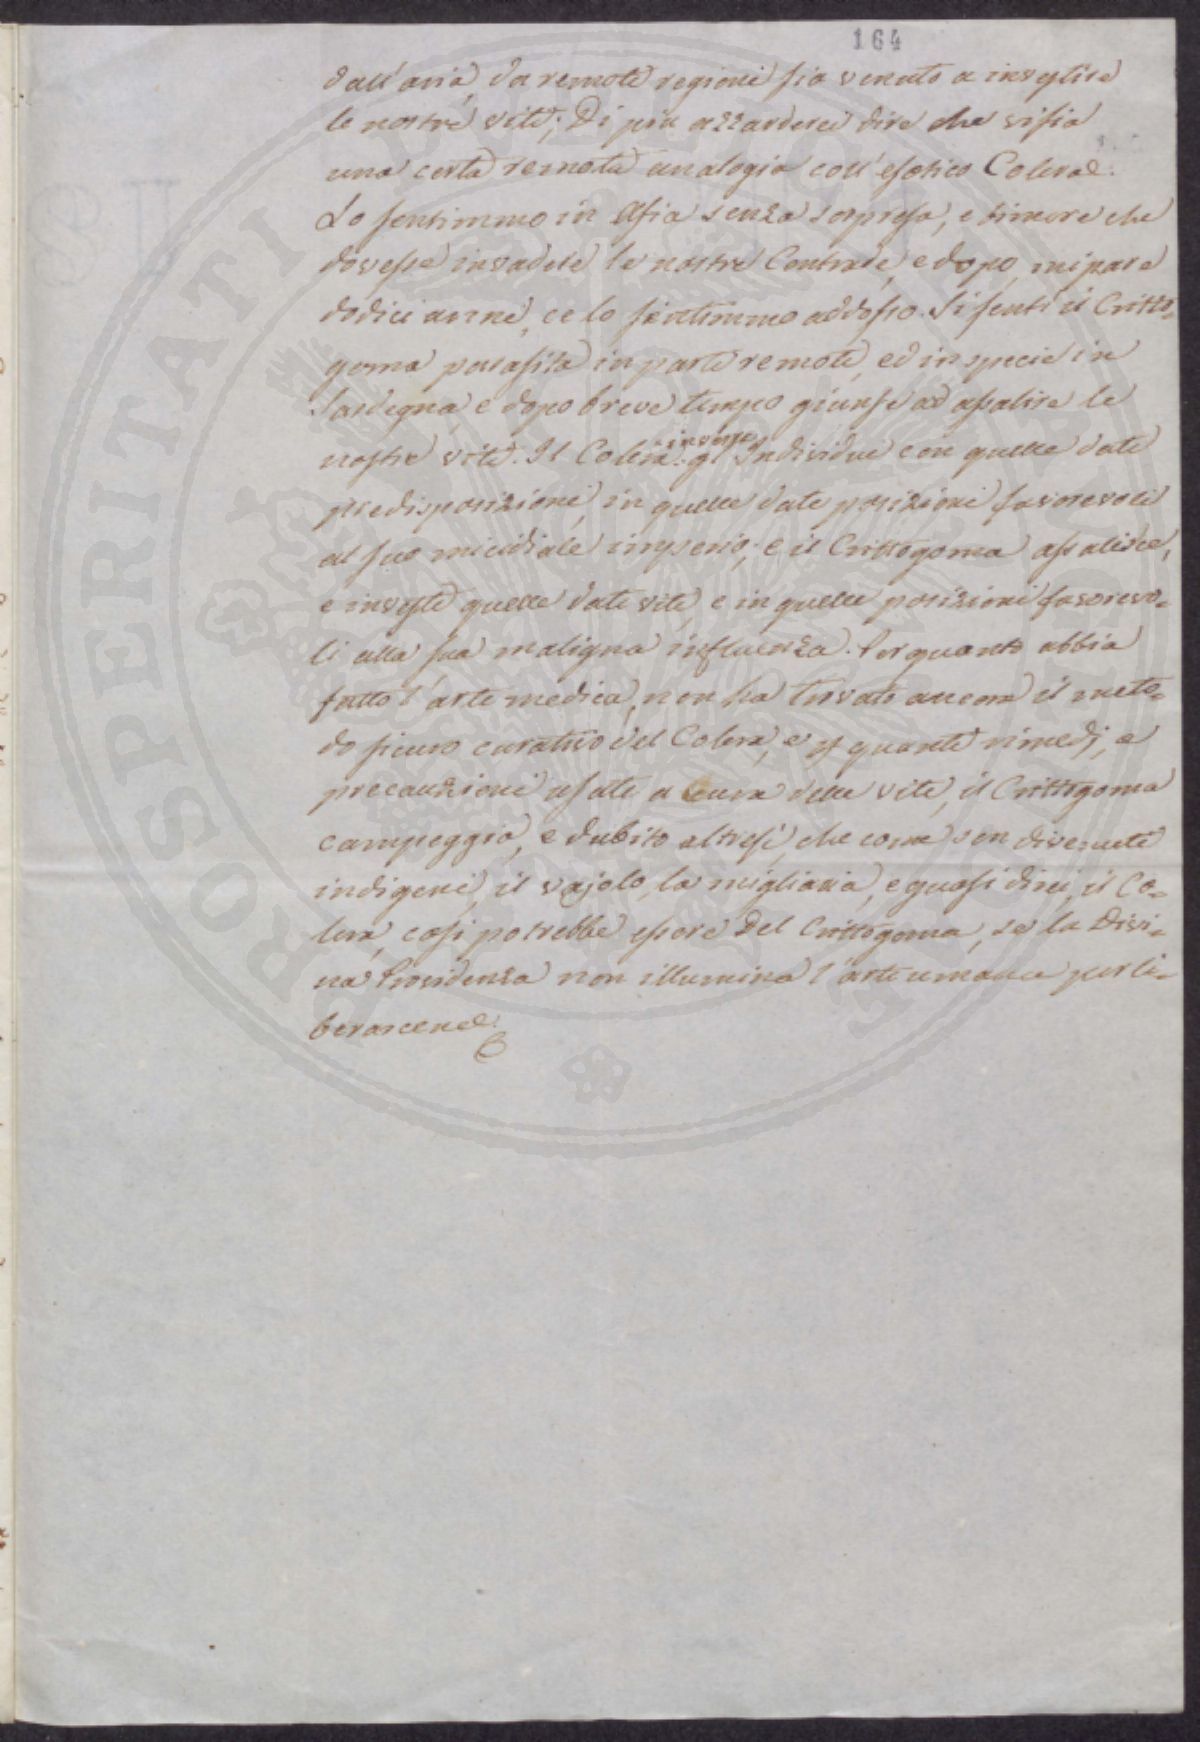 164
dall'aria, da remote regioni sia venuto a investire
le nostre vite; Di più azzarderei dire che vi sia
una certa remota analogia coll'esotico Colera.
Lo sentimmo in Asia senza sorpresa, e timore che
dovesse invadere le nostre Contrade, e dopo, mi pare
dodici anni, ce lo sentimmo addosso. Si sentì il Critto-
goma parassita in parte remote, ed in specie in
Sardegna, e dopo breve tempo giunse ad assalire le
nostre vite. Il Colera investe gl'Individui con quelle date
predisposizioni, in quelle date posizioni favorevoli
al suo micidiale imperio; e il Crittogoma assalisce,
e investe quelle date vite, e in quelle posizioni favorevo-
li alla sua maligna influenza. Per quanto abbia
fatto l'arte medica, non ha trovato ancora il meto-
do sicuro curativo del Colera, e p quanti rimedj, e
precauzioni usate a cura delle vite, il Crittogoma
campeggia, e dubito altresì, che come son divenuti
indigeni, il vajolo, la migliaria, e quasi direi, il Co-
lera, così potrebbe essere del Crittogoma, se la Divi-
na Providenza non illumina l'arte umana per li-
berarcene.
PROSPERITATI